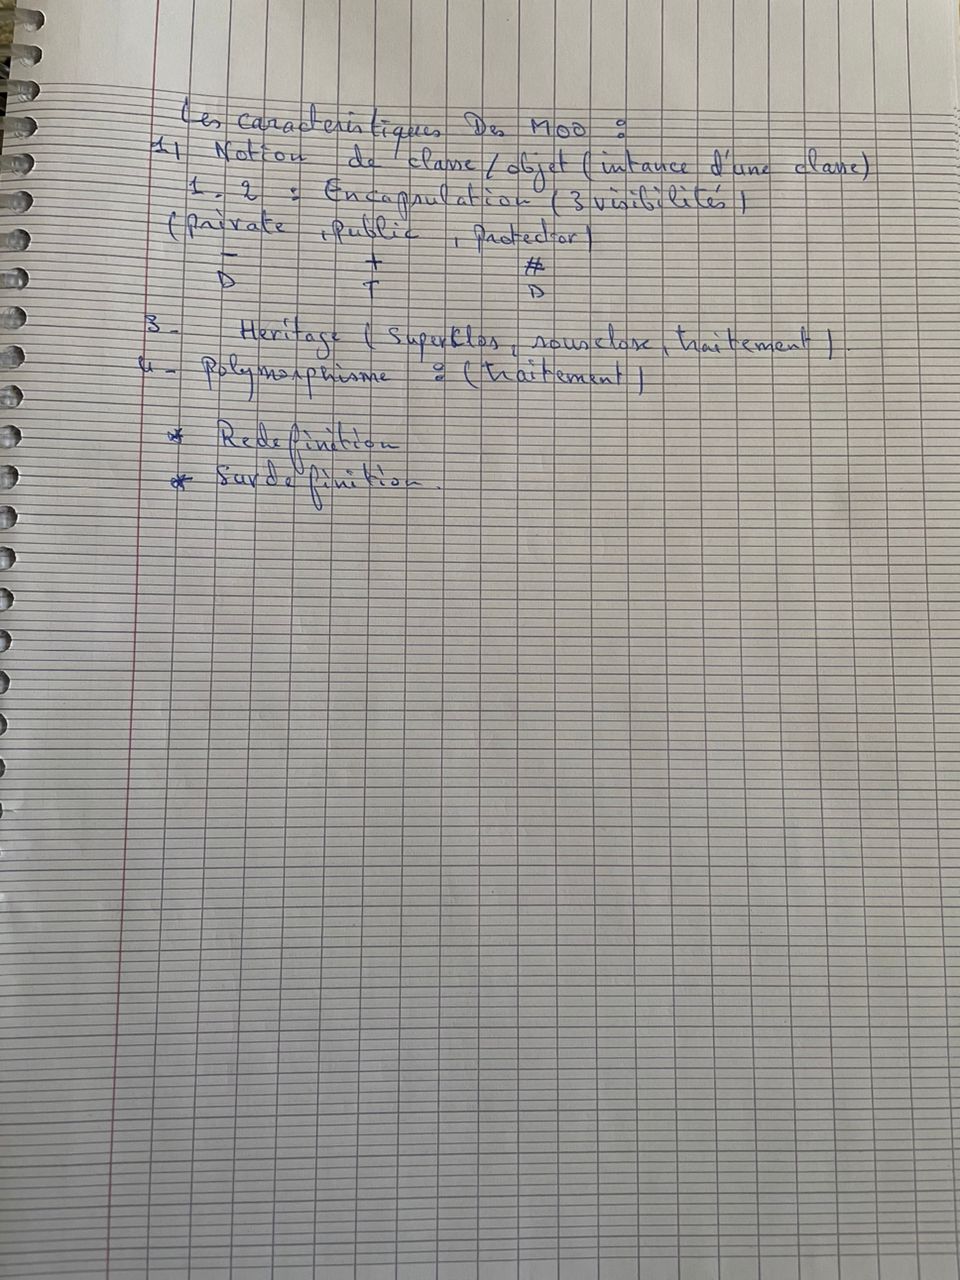 Les caracteristiques Des MOO :
1) Notion de classe / objet (intance d'une classe)
1. 2 : Encapsulation (3 visibilités)
(private , public , protector)
- + #
D T D
3- Heritage ( Superklas, sousclase, traitement ).
4- polymorphisme : (traitement)
* Redefinition
* Surdefinition.